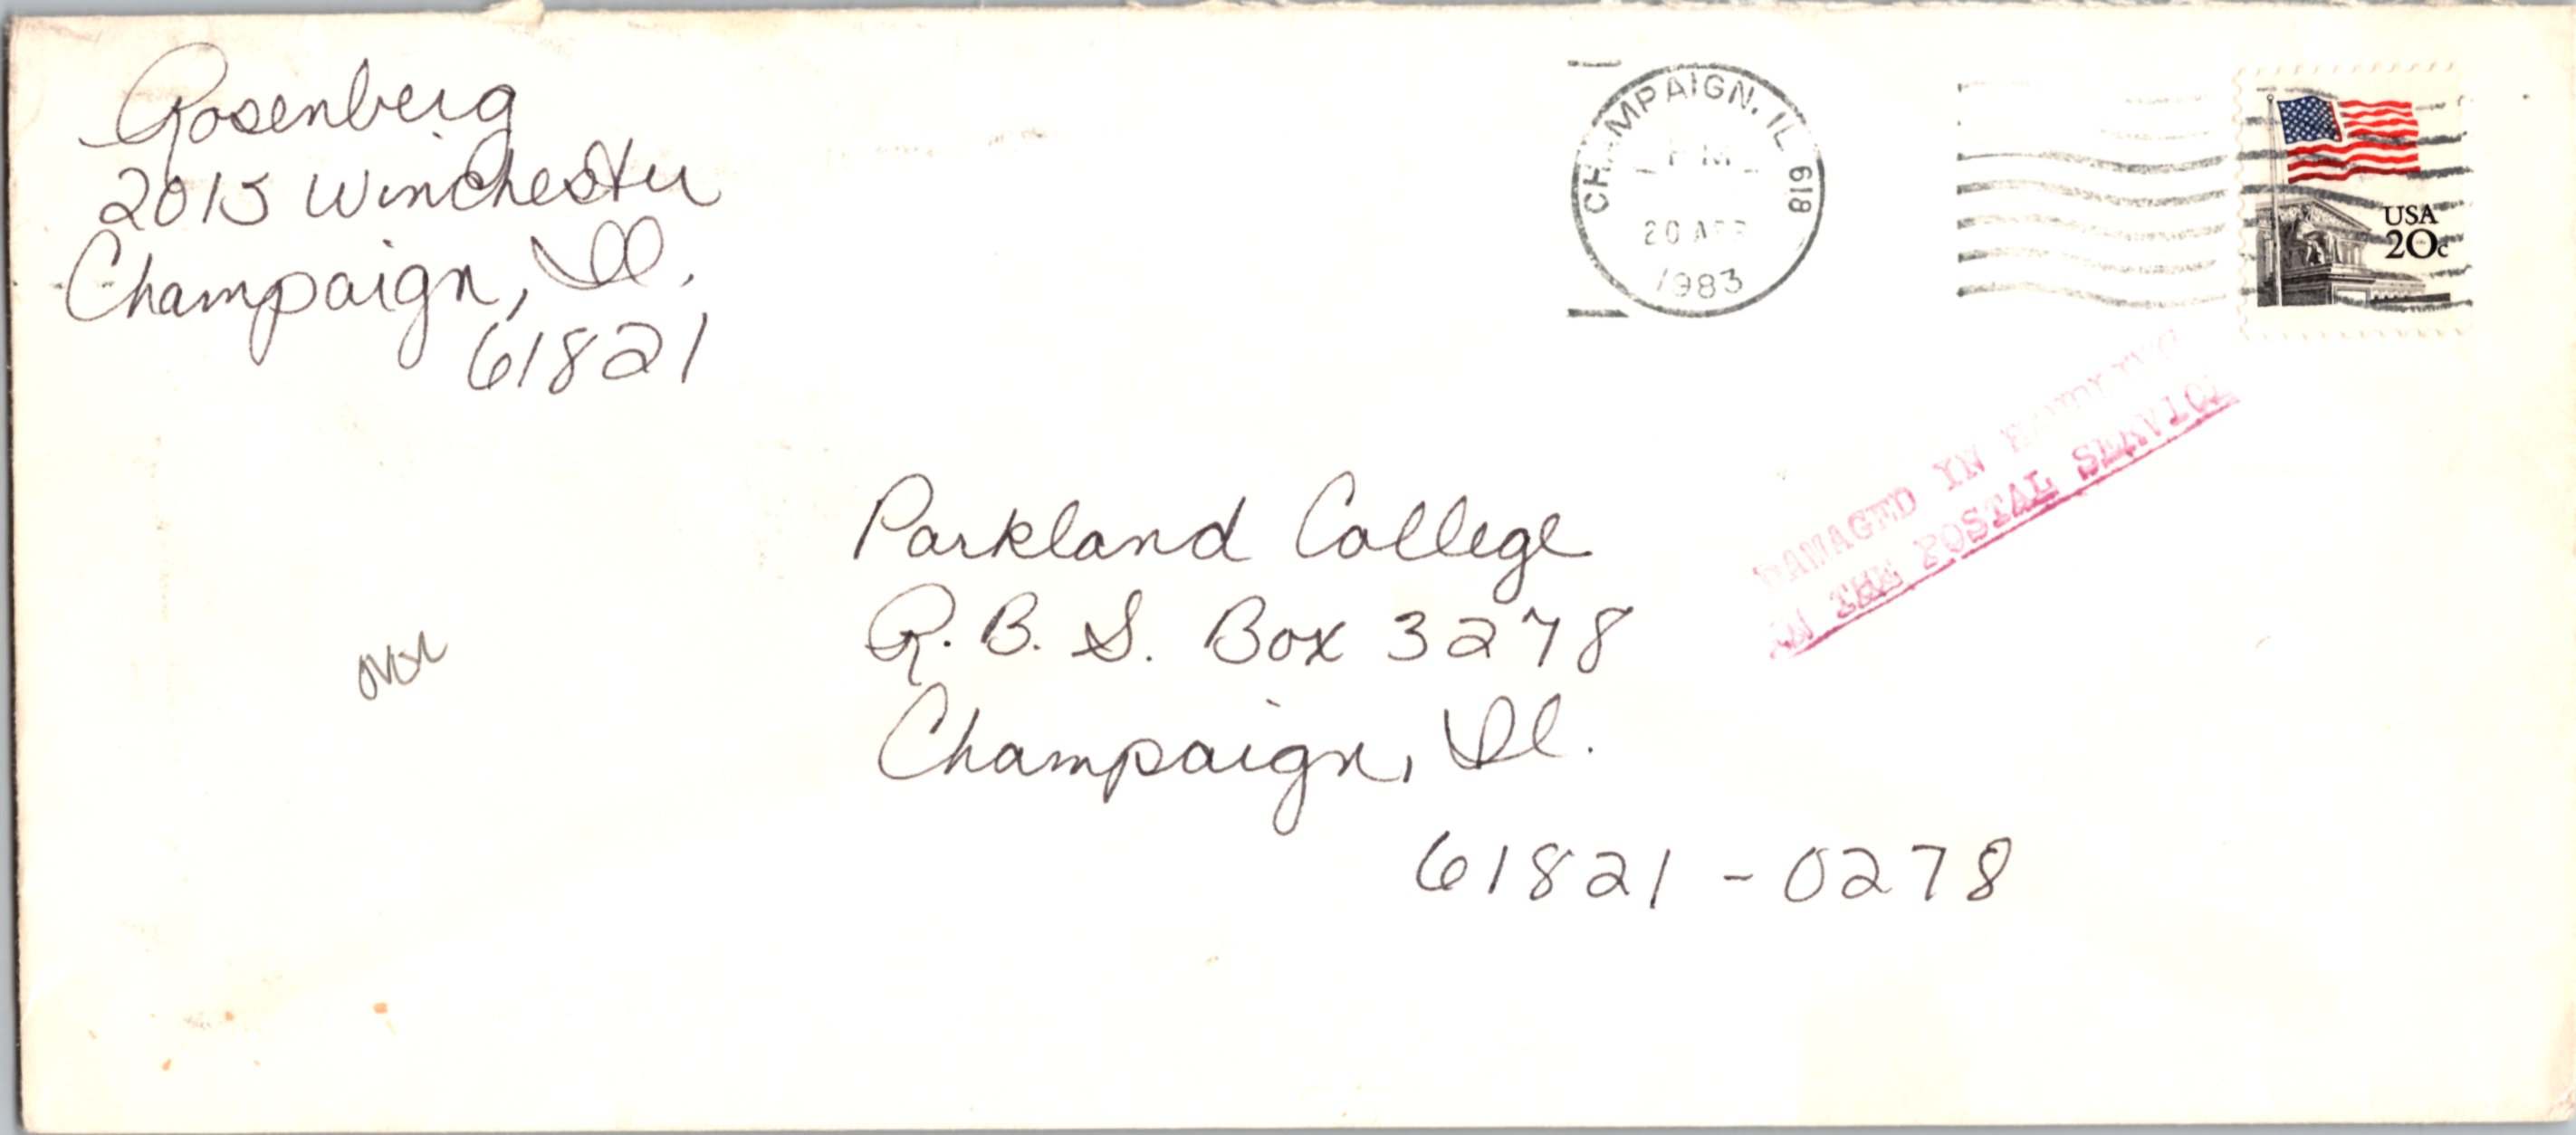 Rosenberg
2015 Winchester
Champaign, Ill.
61821
CHAMPAIGN, IL 618
PM
20 APR
1983
USA
20c
DAMAGED IN HANDLING
IN THE POSTAL SERVICE
Parkland College
R. B. S. Box 3278
Champaign, Il.
61821-0278